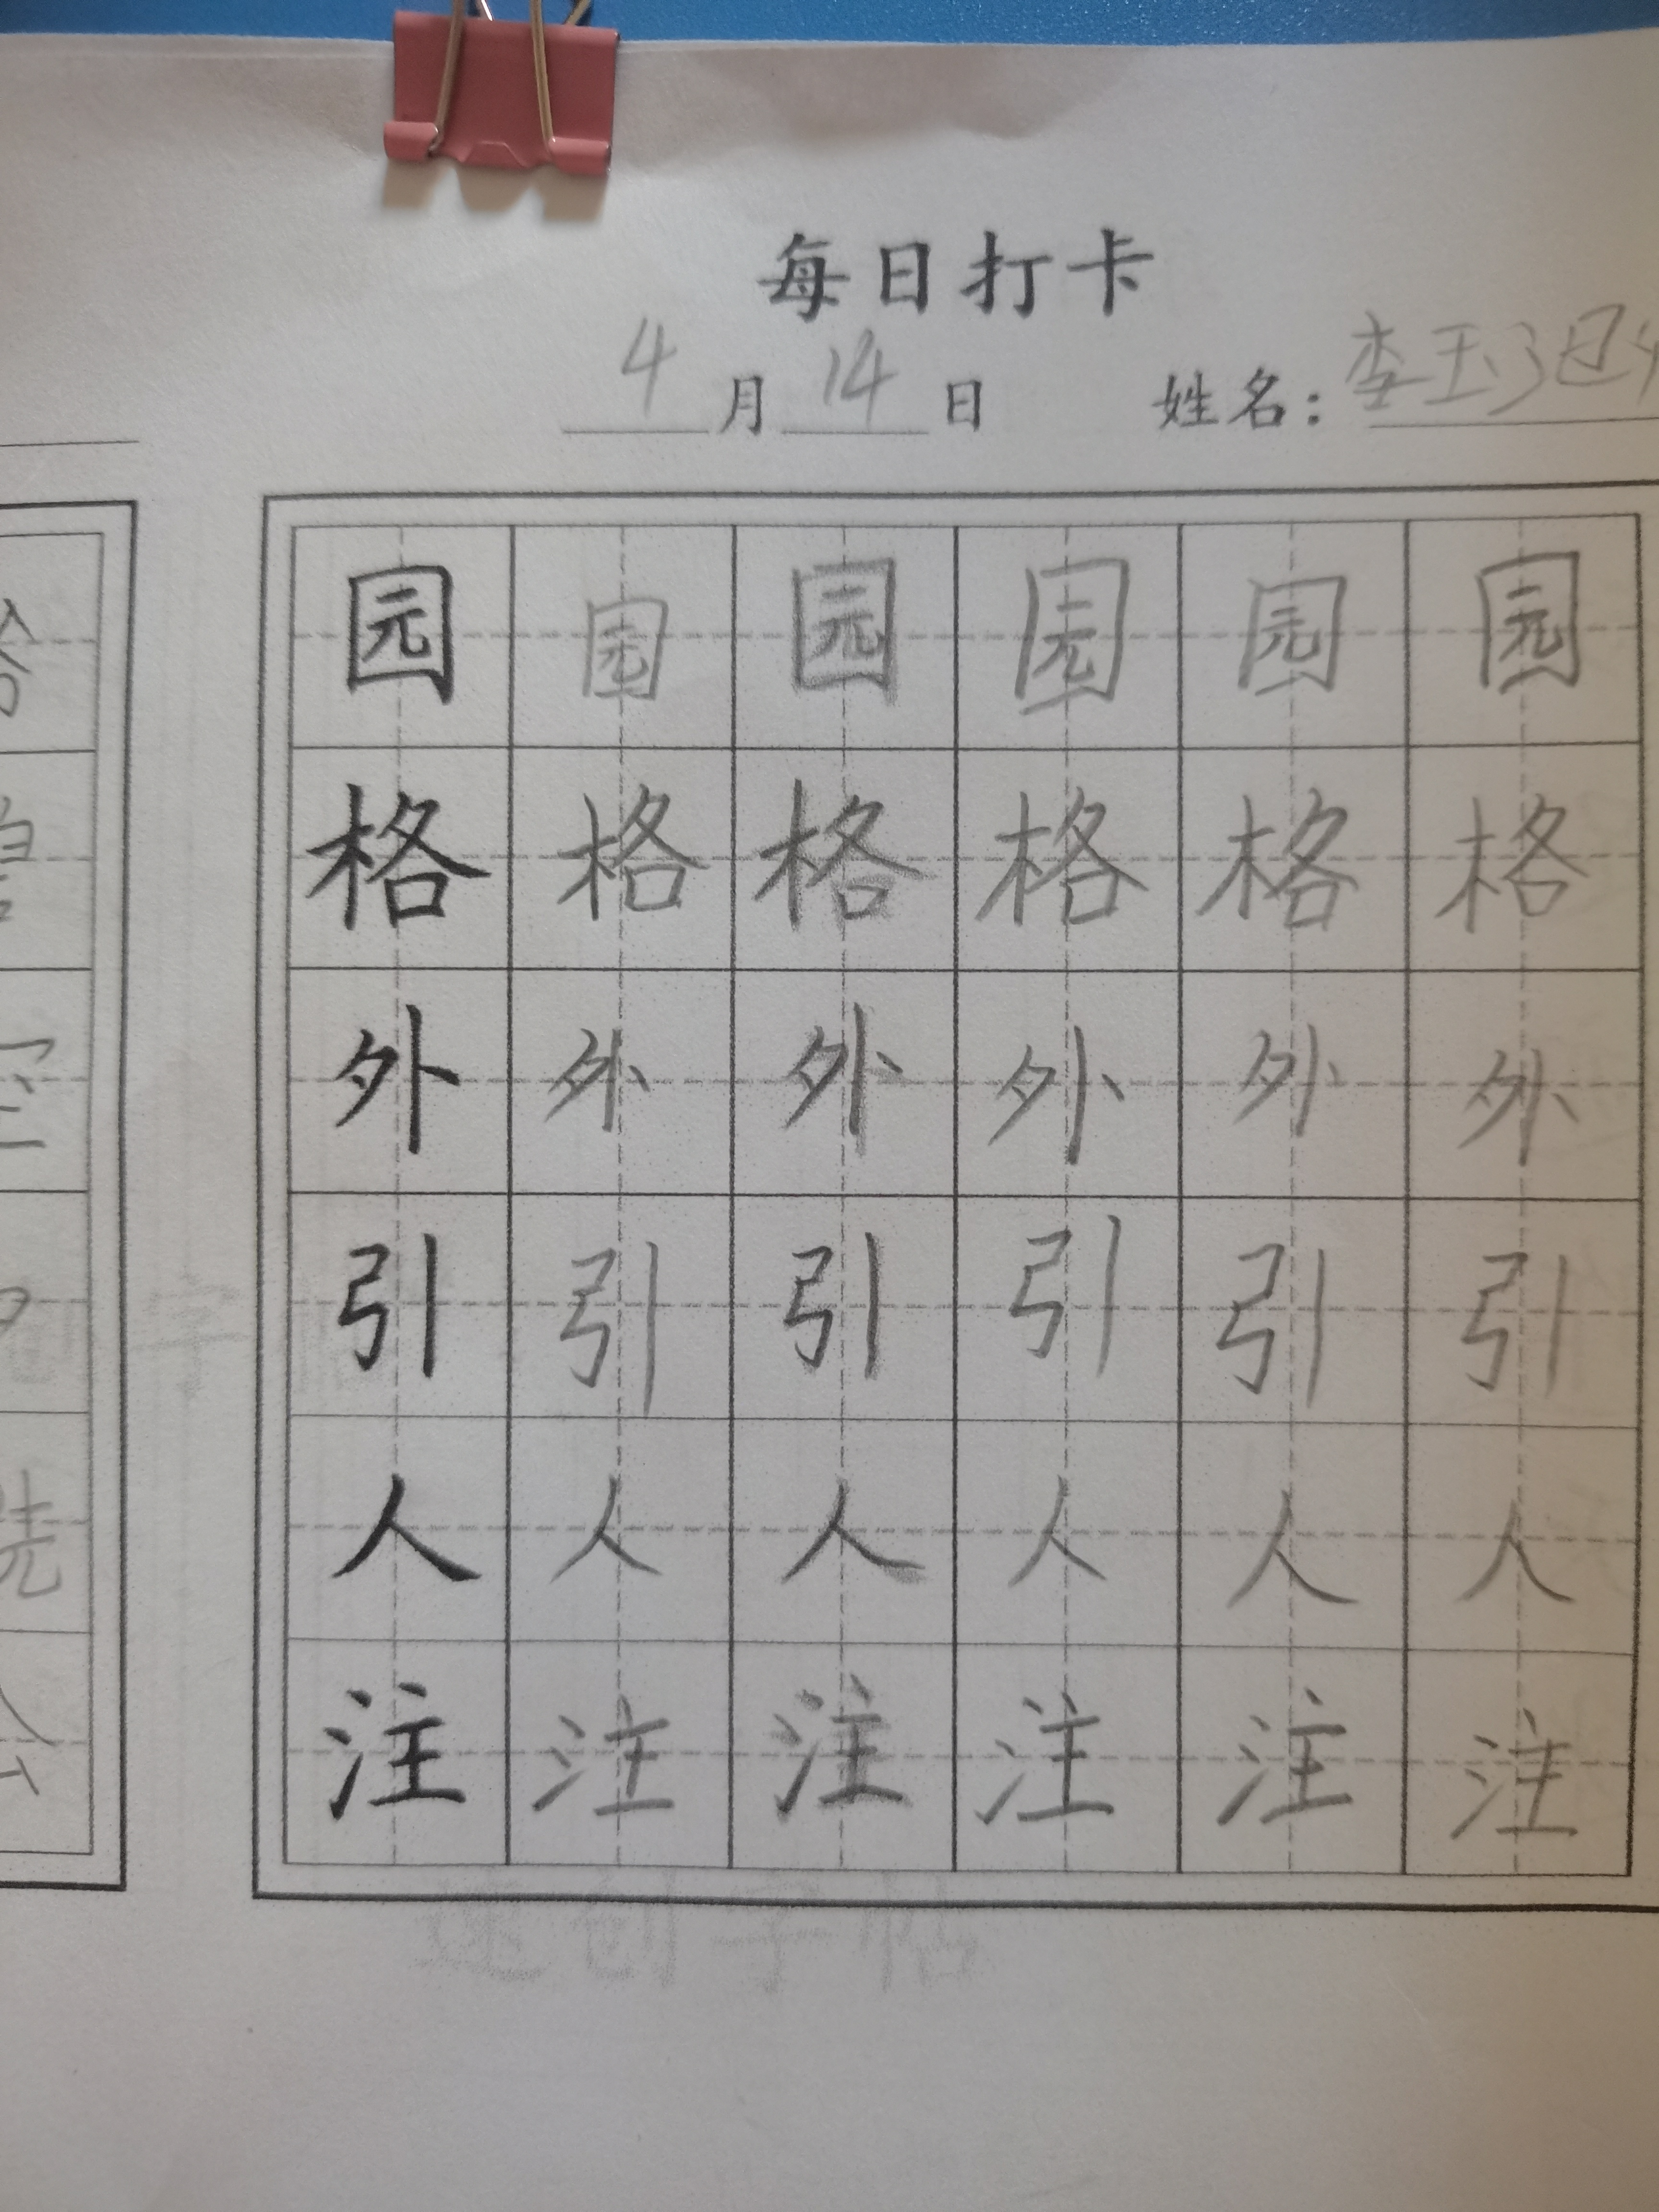 每日打卡
4月14日 姓名：李玉
园园园园园园
格格格格格格
外外外外外外
引引引引引引
人人人人人人
注注注注注注